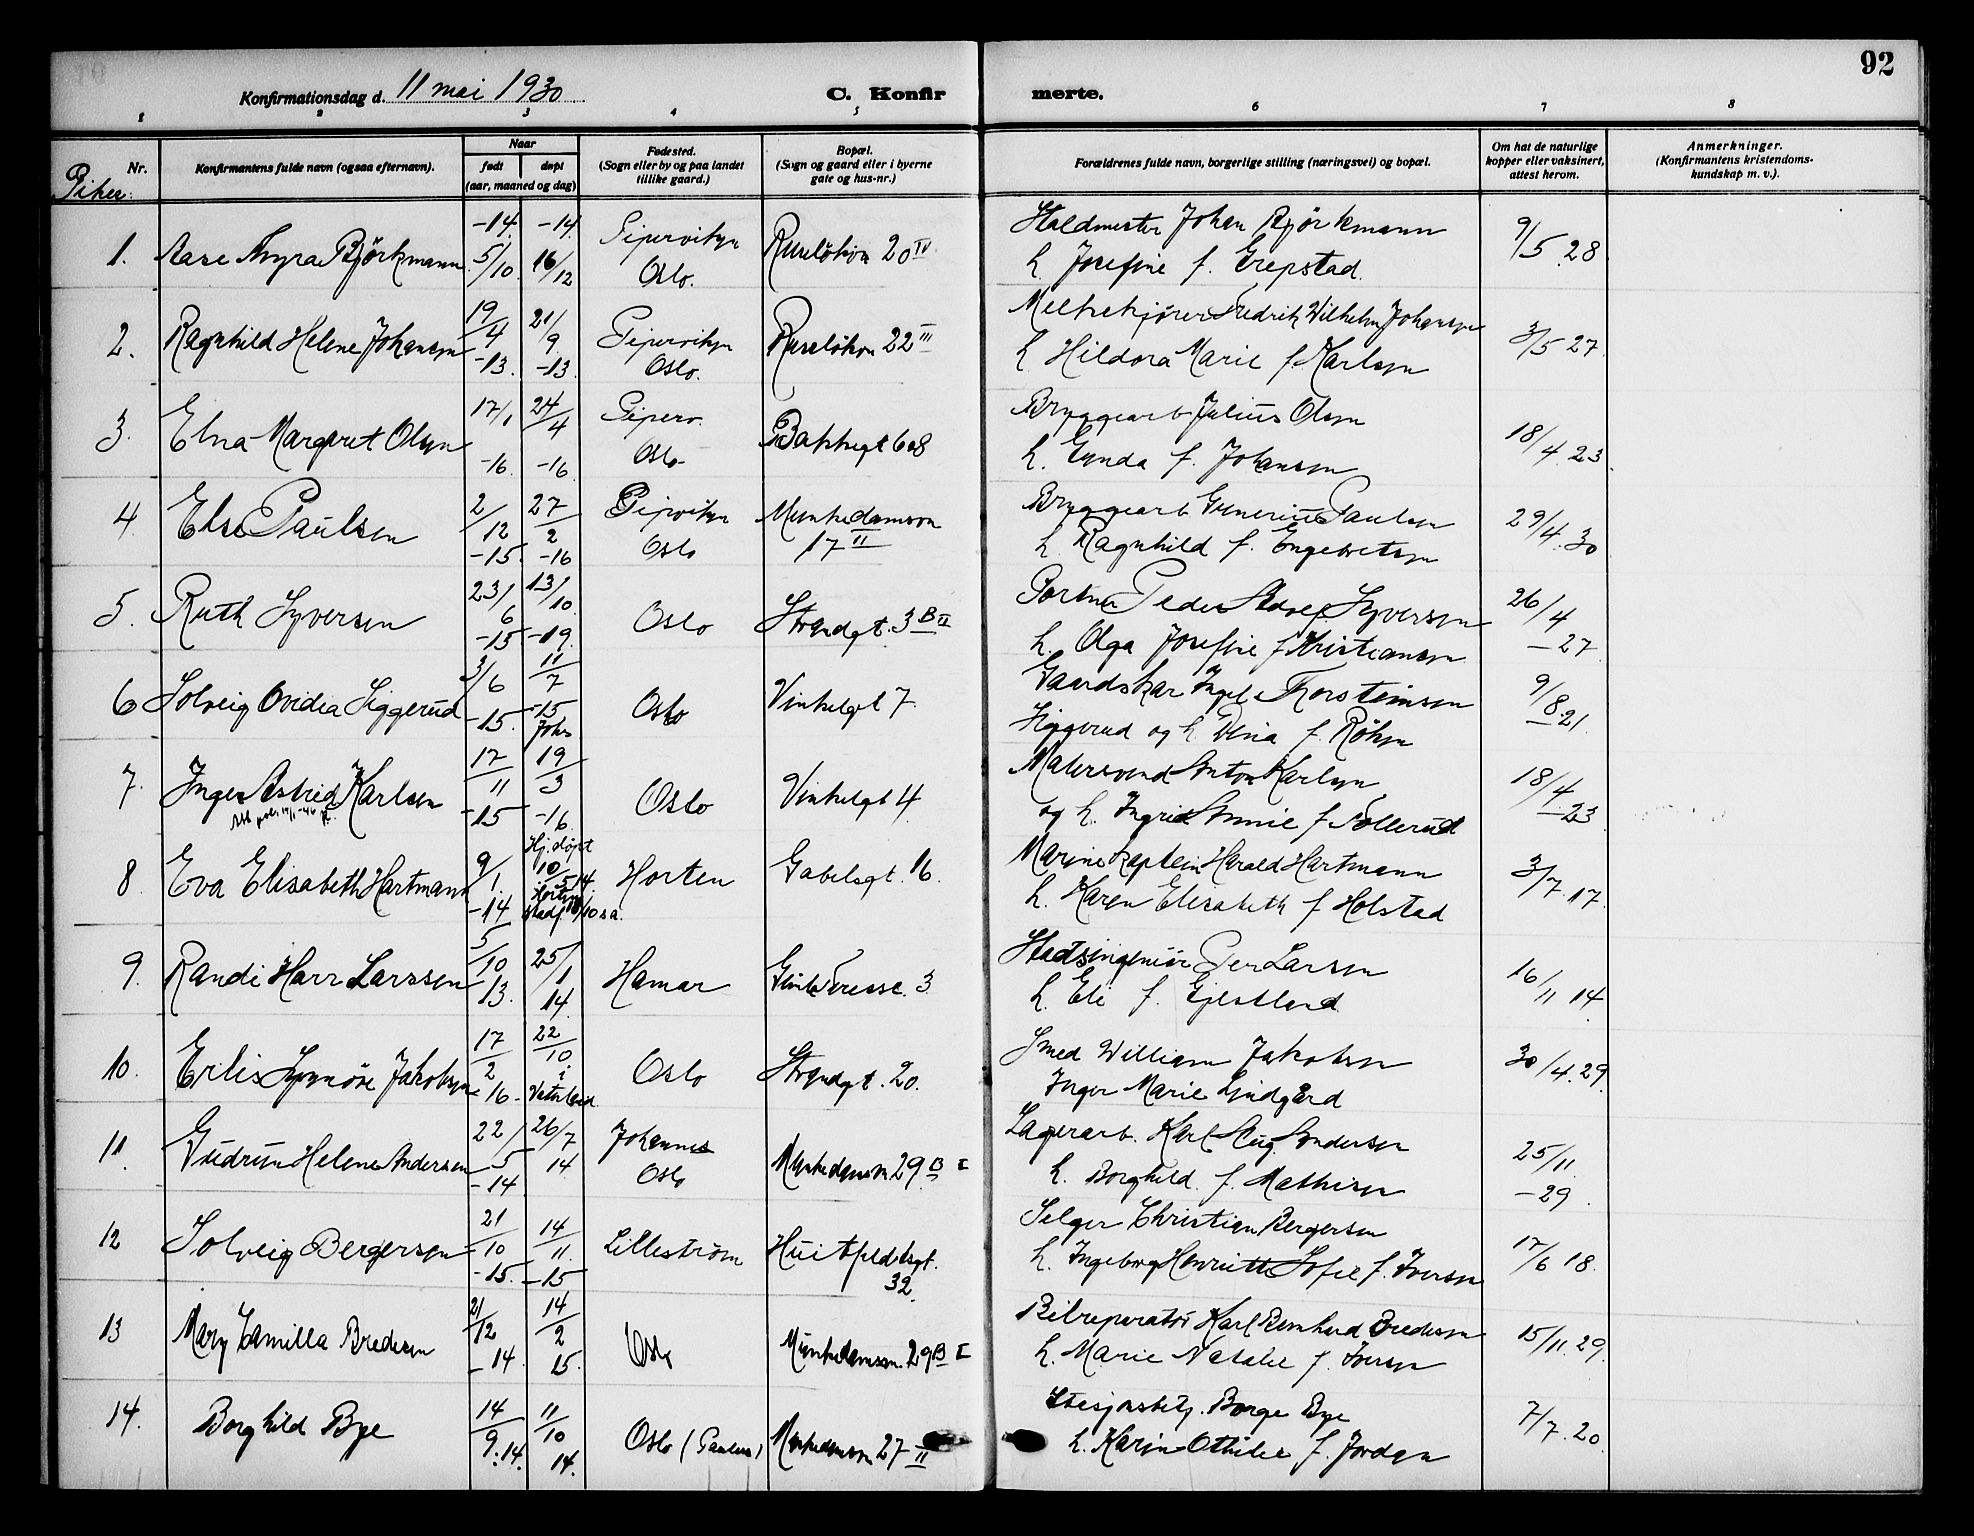 92
Konfirmationsdag d. 11 mai 1930
C. Konfir merte.
1 2 3 4 5 6 7 8
Nr.
Konfirmantens fulde navn (ogsaa efternavn).
Naar
født døpt
(aar, maaned og dag)
Fødested.
(Sogn eller by og paa landet
tillike gaard.)
Bopæl.
(Sogn og gaard eller i byerne
gate og hus-nr.)
Forældrenes fulde navn, borgerlige stilling (næringsvei) og bopæl.
Om hat de naturlige
kopper eller vaksinert,
attest herom.
Anmerkninger.
(Konfirmantens kristendoms-
kundskap m. v.).
Piker:
1. Aase Thyra Björkmann
-14. 5/10 -14. 16/12
Pipervikyn
Oslo.
Ruseløkvn 20 IV
Staldmester Johan Björkmann
h. Josefine f. Grepstad.
9/5 28
2. Ragnhild Helene Johansyn
19/4 -13. 21/9 -13.
Pipervikyn
Oslo.
Ruseløkvn 22 III
Melkekjører Fredrik Wilhelm Johansyn
h Hildora Marie f. Karlsyn
3/5 27
3. Elna Margaret Olsyn
17/1 -16. 24/4 -16
Piperv.
Oslo
Bakkegt 6 o 8
Bryggearb Julius Olsyn
h. Gynda f. Johansyn
18/4 23
4. Else Paulsen
2/12 -15. 27/2 -16
Pipvikyn
Oslo
Munkedamsvn
17 II
Bryggearb Paulsyn
h. Ragnhild f. Engebretsyn
29/4. 30
5. Ruth Syversen
23/6 -15 13/10. -19.
Oslo
Strandgt. 3 B II
Portner Peder Adolf Syversen
h. Olga Josefine f Kristiansyn
26/4 -27
6 Solveig Ovidia Siggerud
3/6 -15. 11/7 -15 Johs
Oslo
Vinkelgt 7.
Gaardskar Ingel Thorsteinsen
Siggerud og h Dina f. Röhyn
9/8 21.
7. Inger Astrid Karlsen
17/11 -15 19/3 -16.
Oslo
Vinkelgt 4
Malersvend Anton Karlsyn
og h. Ingrid Annie f Tollerud
18/4 -23
8 Eva Elisabeth Hartmann
9/1. -14 Hj. døpt 10/5 14. Horten stadf. 18/10 s.a.
Horten
Gabelsgt. 16.
Marinekaptein Harald Hartmann
h. Karen Elisabeth f Holstad
3/7. 17.
9. Randi Harr Larssen
5/10 -13. 25/1 14.
Hamar
Gimle Terasse. 3
Stadsingeniör Per Larsen
h. Eli f. Gjestland
16/11 14
10. Erlis Synnöve Jakobsyn
17/2 -16 22/10 i Vaterland
Oslo
Strandgt. 20.
Smed William Jakobsyn
Inger Marie Lindgård
30/4. 29
11. Gudrun Helene Andersen
22/5 -14 26/7 14
Johannes
Oslo
Munkedamsvn 29 B I
Lagerarb. Karl Aug. Andersen
h. Borghild f. Mathisyn
25/11 -29
12 Solveig Bergersyn
21/10 -15. 14/11. -15
Lilleström
Huitfeldtsgt.
32
Selger Christian Bergersen
h. Ingeborg Henriette Sofie f. Iversyn
17/6 18.
13 Mary Camilla Bredesen
21/12 -14. 14/2 15.
Oslo
Munkedamsvn. 29 B I
Bilreparatör Karl Bernhard Bredesen
h. Marie Natalie f. Iversyn
15/11. 29.
14. Borghild Bye
14/9. 14. 11/10 14.
Oslo (Paulus)
Munkedamsvn 27 II
Stasjonsbetj. Borge Bye
h. Karin Othilie f. Jordan
7/7. 20.